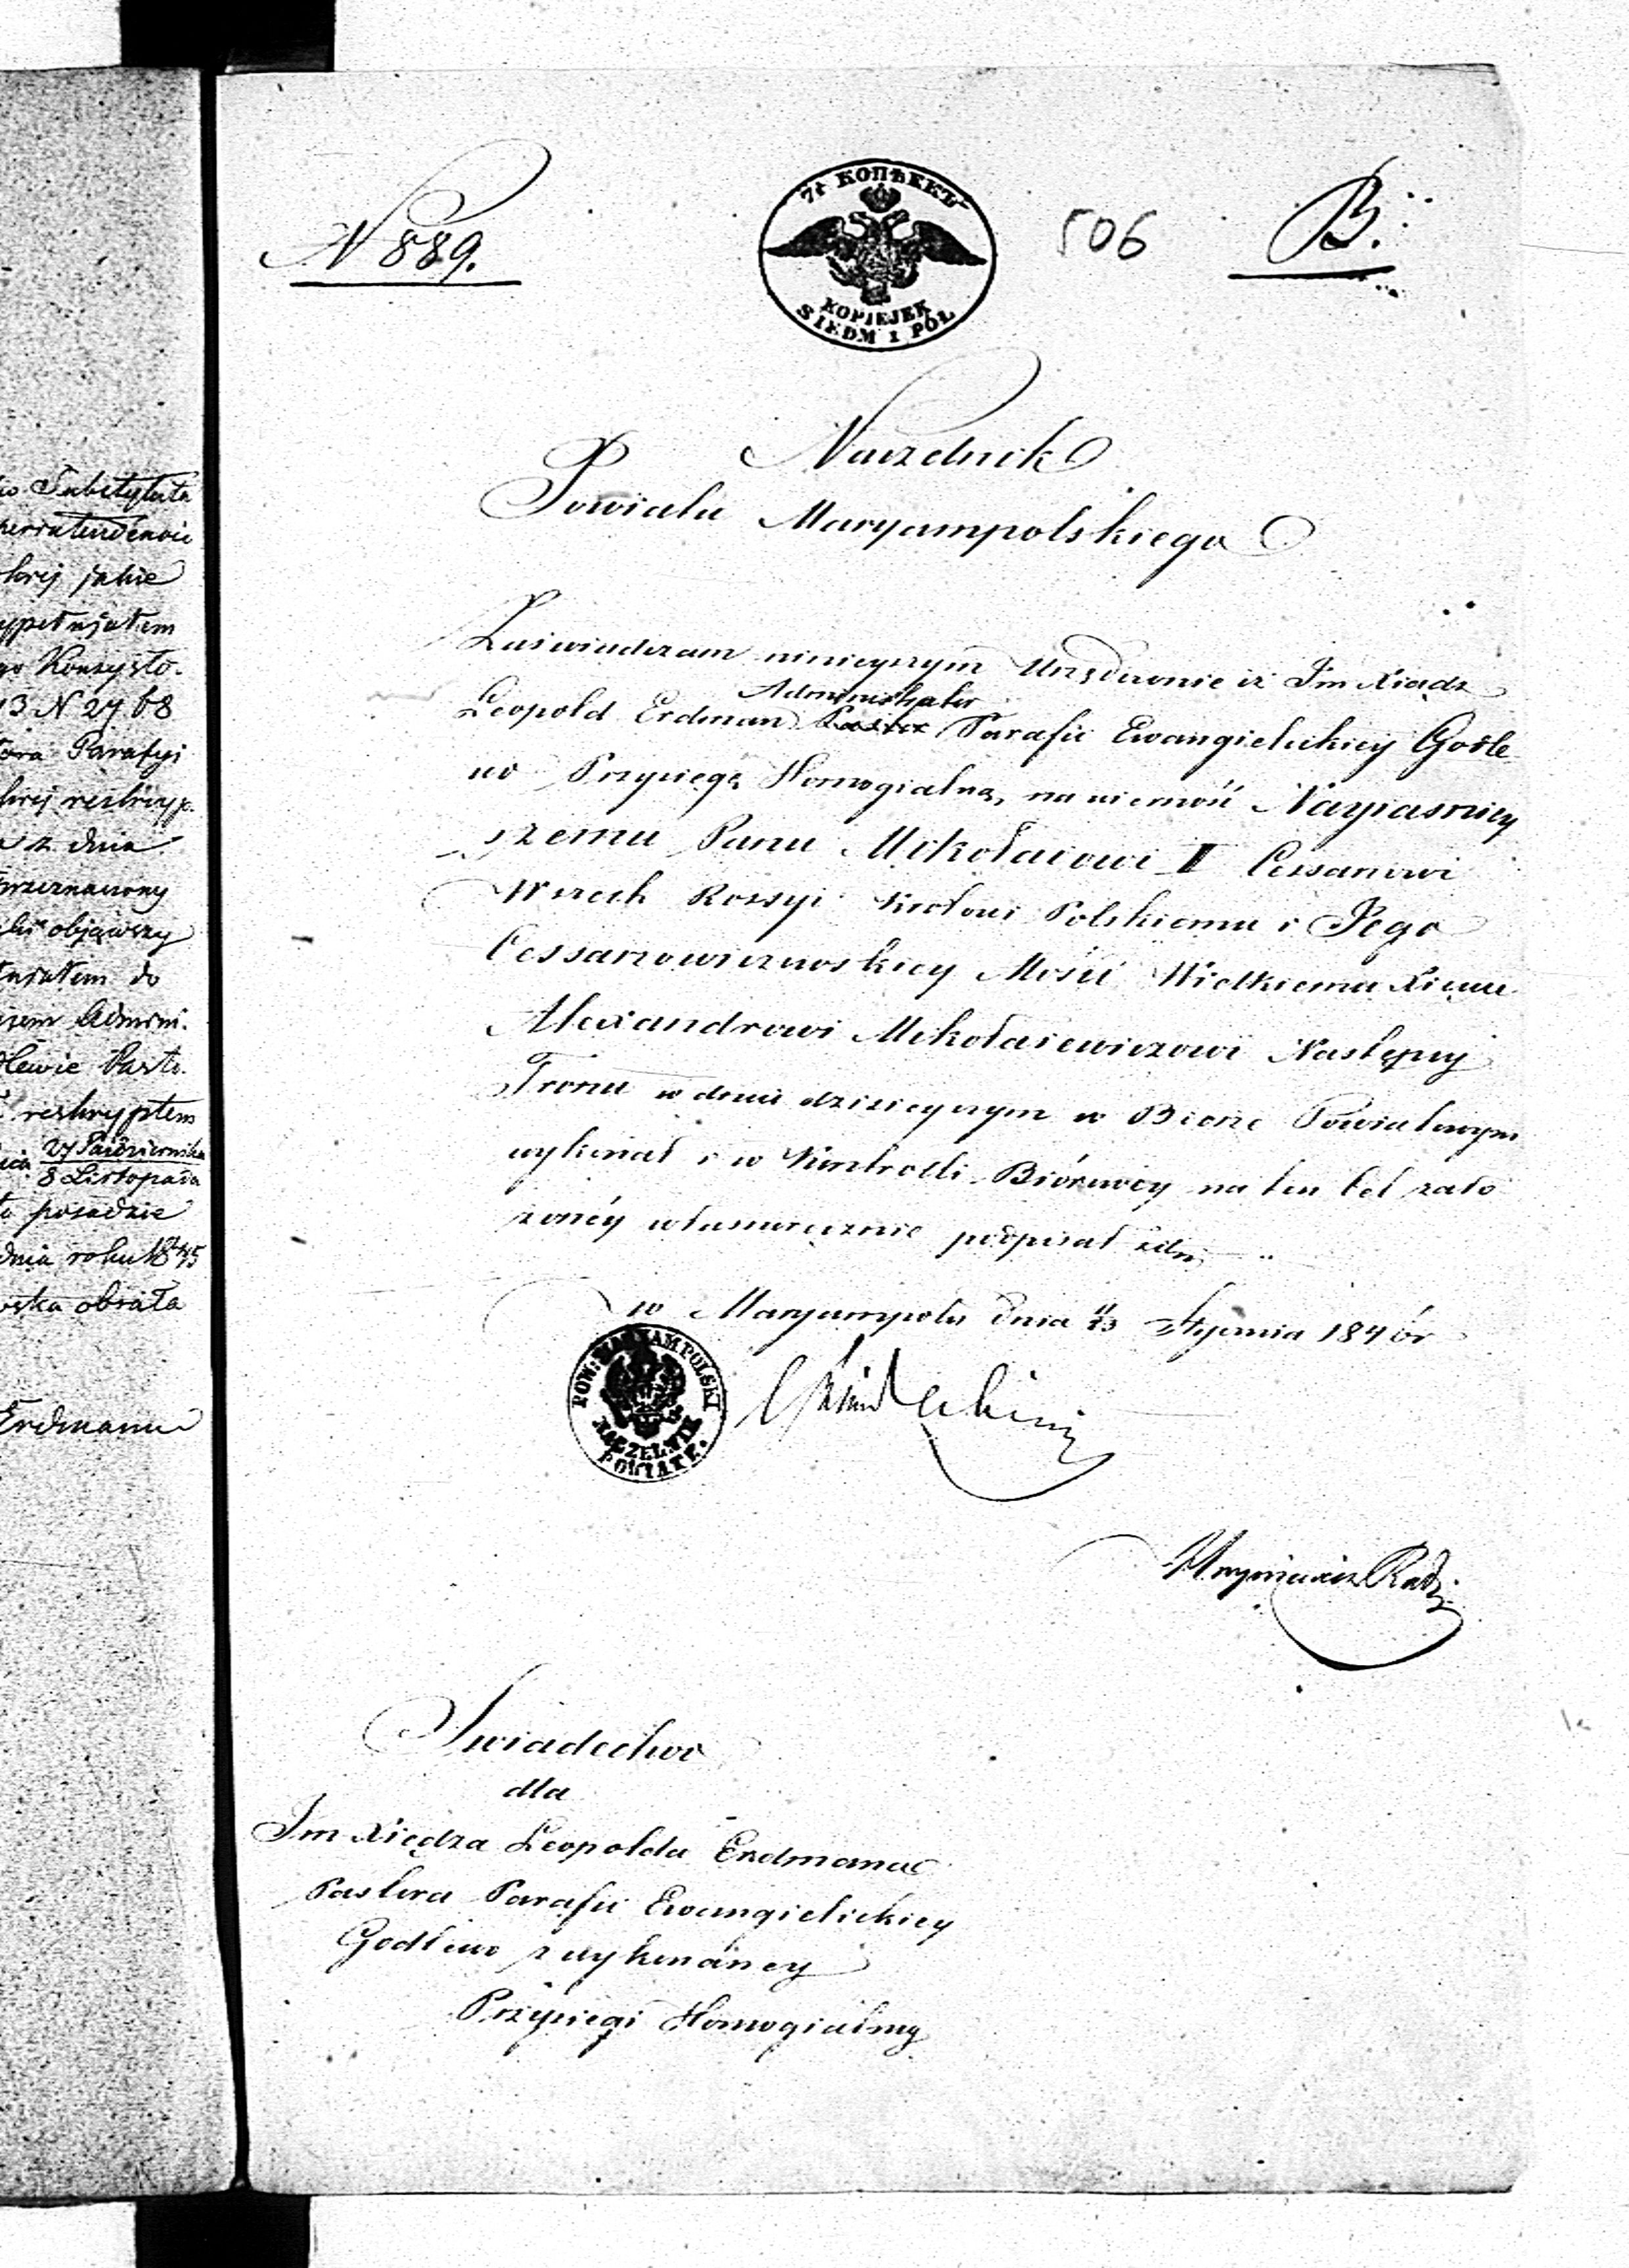 ко Subitytuta
skiej jakie
go Konsysto-
13 N 2768
tora Parafyi
skiej reskryp.
z dnia
przeznaczony
objąwszy
do
Admini.
Pasto.
reskryptem
27 Października
8 Listopada
posadzie
dnia roku 1845
obrała
Erdmann
N 889.
7½ КОПѢЕКЪ
KOPIEJEK
SIEDM I PÓŁ
506
B.
Naczelnik
Powiatu Maryampolskiego
Zaświadczam ninieyszym Urzędownie iż Jm Xiądz
Administrator
Leopold Erdman Pastor Parafii Ewangielickiey Godle
wo Przysięgę Homogialną, na wierność Nayiaśniey
szemu Panu Mikołaiowi I Cessarzowi
Wszech Rossyi Królowi Polskiemu i Jego
Cessarzowiczowskiey Mości Wielkiemu Xięciu
Alexandrowi Mikołaiewiczowi Następcy
Tronu w dniu dzisieyszym w Biórze Powiatowym
wykonał i w Kontrolli Biórowey na ten cel zało
żonéy własnoręcznie podpisał
w Maryampolu dnia 11/23 Stycznia 1846 r
POW: MARYAMPOLSKI
NACZELNIK
POWIATU.
Świadectwo
dla
Jm Xiędza Leopolda Erdmana
Pastora Parafii Ewangielickiey
Godlewo z wykonáney
Przysięgi Homogialnéy